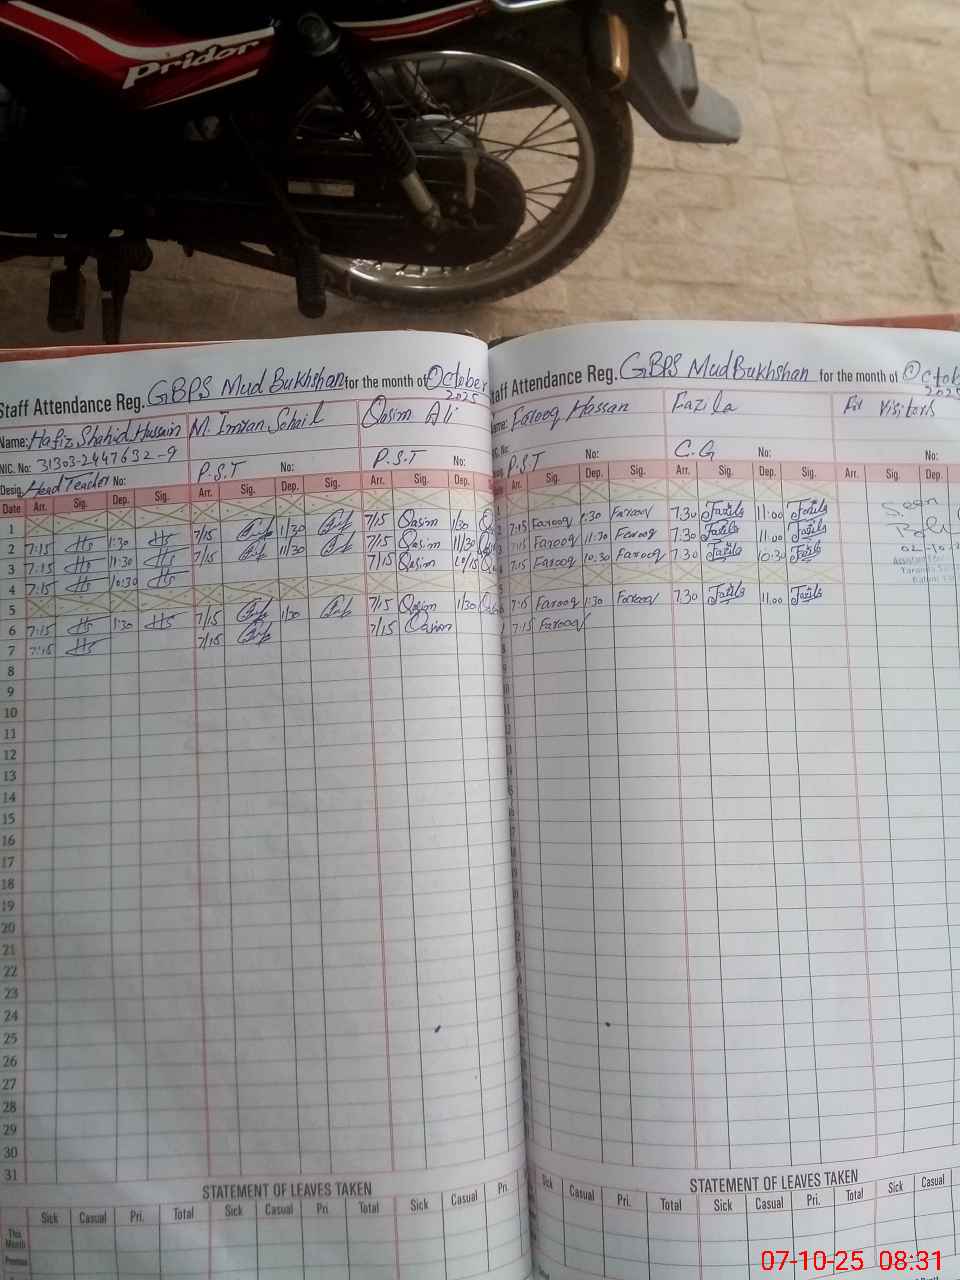 Pridor
Staff Attendance Reg. GBPS Mud Bukhshan for the month of October
2025
Name: Hafiz Shahid Hussain M. Imran Sohail Qasim Ali
NIC. No: 31303-2447632-9
Desig. Head Teacher No: P.S.T No: P.S.T No:
Date Arr. Sig. Dep. Sig. Arr. Sig. Dep. Sig. Arr. Sig. Dep. Sig.
1
2 7:15 Hs 1:30 Hs 7/15 1/30 7/15 Qasim 1/30
3 7:15 Hs 11:30 Hs 7/15 11/30 7/15 Qasim 11/30
4 7:15 Hs 10/30 Hs 7/15 Qasim
5
6 7:15 Hs 1:30 Hs 7/15 1/30 7/15 Qasim 1/30
7 7:15 Hs 7/15 7/15 Qasim
8
9
10
11
12
13
14
15
16
17
18
19
20
21
22
23
24
25
26
27
28
29
30
31
STATEMENT OF LEAVES TAKEN
Sick Casual Pri. Total Sick Casual Pri Total Sick Casual Pri.
This
Month
Previous
Staff Attendance Reg. GBPS Mud Bukhshan for the month of October
2025
Name: Farooq Hassan Fazila Visitors
P.S.T No: C.G No: No:
Arr. Sig. Dep. Sig. Arr. Sig. Dep. Sig. Arr. Sig. Dep.
7:15 Farooq 1:30 Farooq 7.30 Fazila 11:00 Fazila
7:15 Farooq 11.30 Farooq 7.30 Fazila 11.00 Fazila
7:15 Farooq 10:30 Farooq 7.30 Fazila 10:30 Fazila
7:15 Farooq 1:30 Farooq 7.30 Fazila 11.00 Fazila
7:15 Farooq
Seen
STATEMENT OF LEAVES TAKEN
Sick Casual Pri. Total Sick Casual Pri. Total Sick Casual
07-10-25 08:31